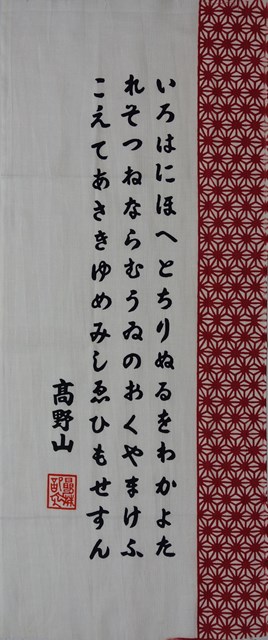 いろはにほへとちりぬるをわかよた
れそつねならむうゐのおくやまけふ
こえてあさきゆめみしゑひもせすん
髙野山